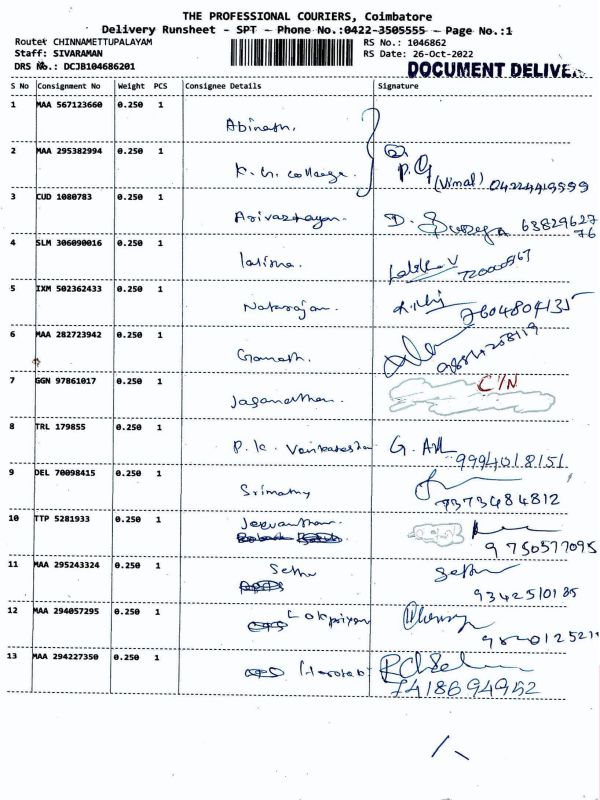 THE PROFESSIONAL COURIERS, Coimbatore
Delivery Runsheet - SPT - Phone No.:0422-3505555 - Page No.:1
Route: CHINNAMETTUPALAYAM RS No.: 1046862
Staff: SIVARAMAN RS Date: 26-Oct-2022
DRS No.: DCJB104686201 DOCUMENT DELIVE
S No Consignment No Weight PCS Consignee Details Signature
1 MAA 567123660 0.250 1
Abinash.
2 MAA 295382994 0.250 1
K. G. College. (Vimal) 04224419999
3 CUD 1080783 0.250 1
Arivazhagan. D. 63829627
76
4 SLM 306090016 0.250 1
5 IXM 502362433 0.250 1
Natarajan. 7604804135
6 MAA 282723942 0.250 1
Gomath.
7 GGN 97861017 0.250 1 C/N
Jaganathan.
8 TRL 179855 0.250 1
P.K. Venkatesh G.
9994018151
9 DEL 70098415 0.250 1
Srimathy 7373484812
10 TTP 5281933 0.250 1
Jeevanthan.
9750577095
11 MAA 295243324 0.250 1
Sethu Sethu
9342510185
12 MAA 294057295 0.250 1
Lokpriyan
13 MAA 294227350 0.250 1
7418694952